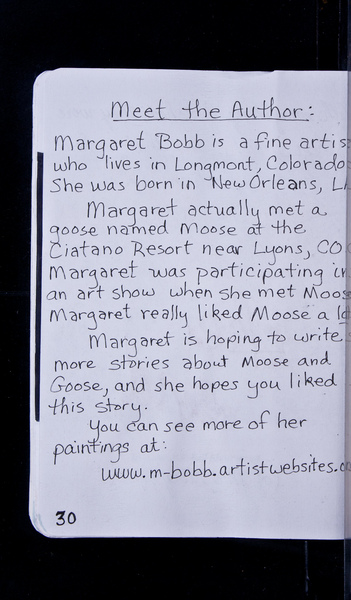 Meet the Author:
Margaret Bobb is a fine artis
who lives in Longmont, Colorado
She was born in New Orleans, LA
Margaret actually met a
goose named Moose at the
Ciatano Resort near Lyons, CO
Margaret was participating in
an art show when she met Moose
Margaret really liked Moose a lo
Margaret is hoping to write
more stories about Moose and
Goose, and she hopes you liked
this story.
You can see more of her
paintings at:
www.m-bobb.artistwebsites.c
30